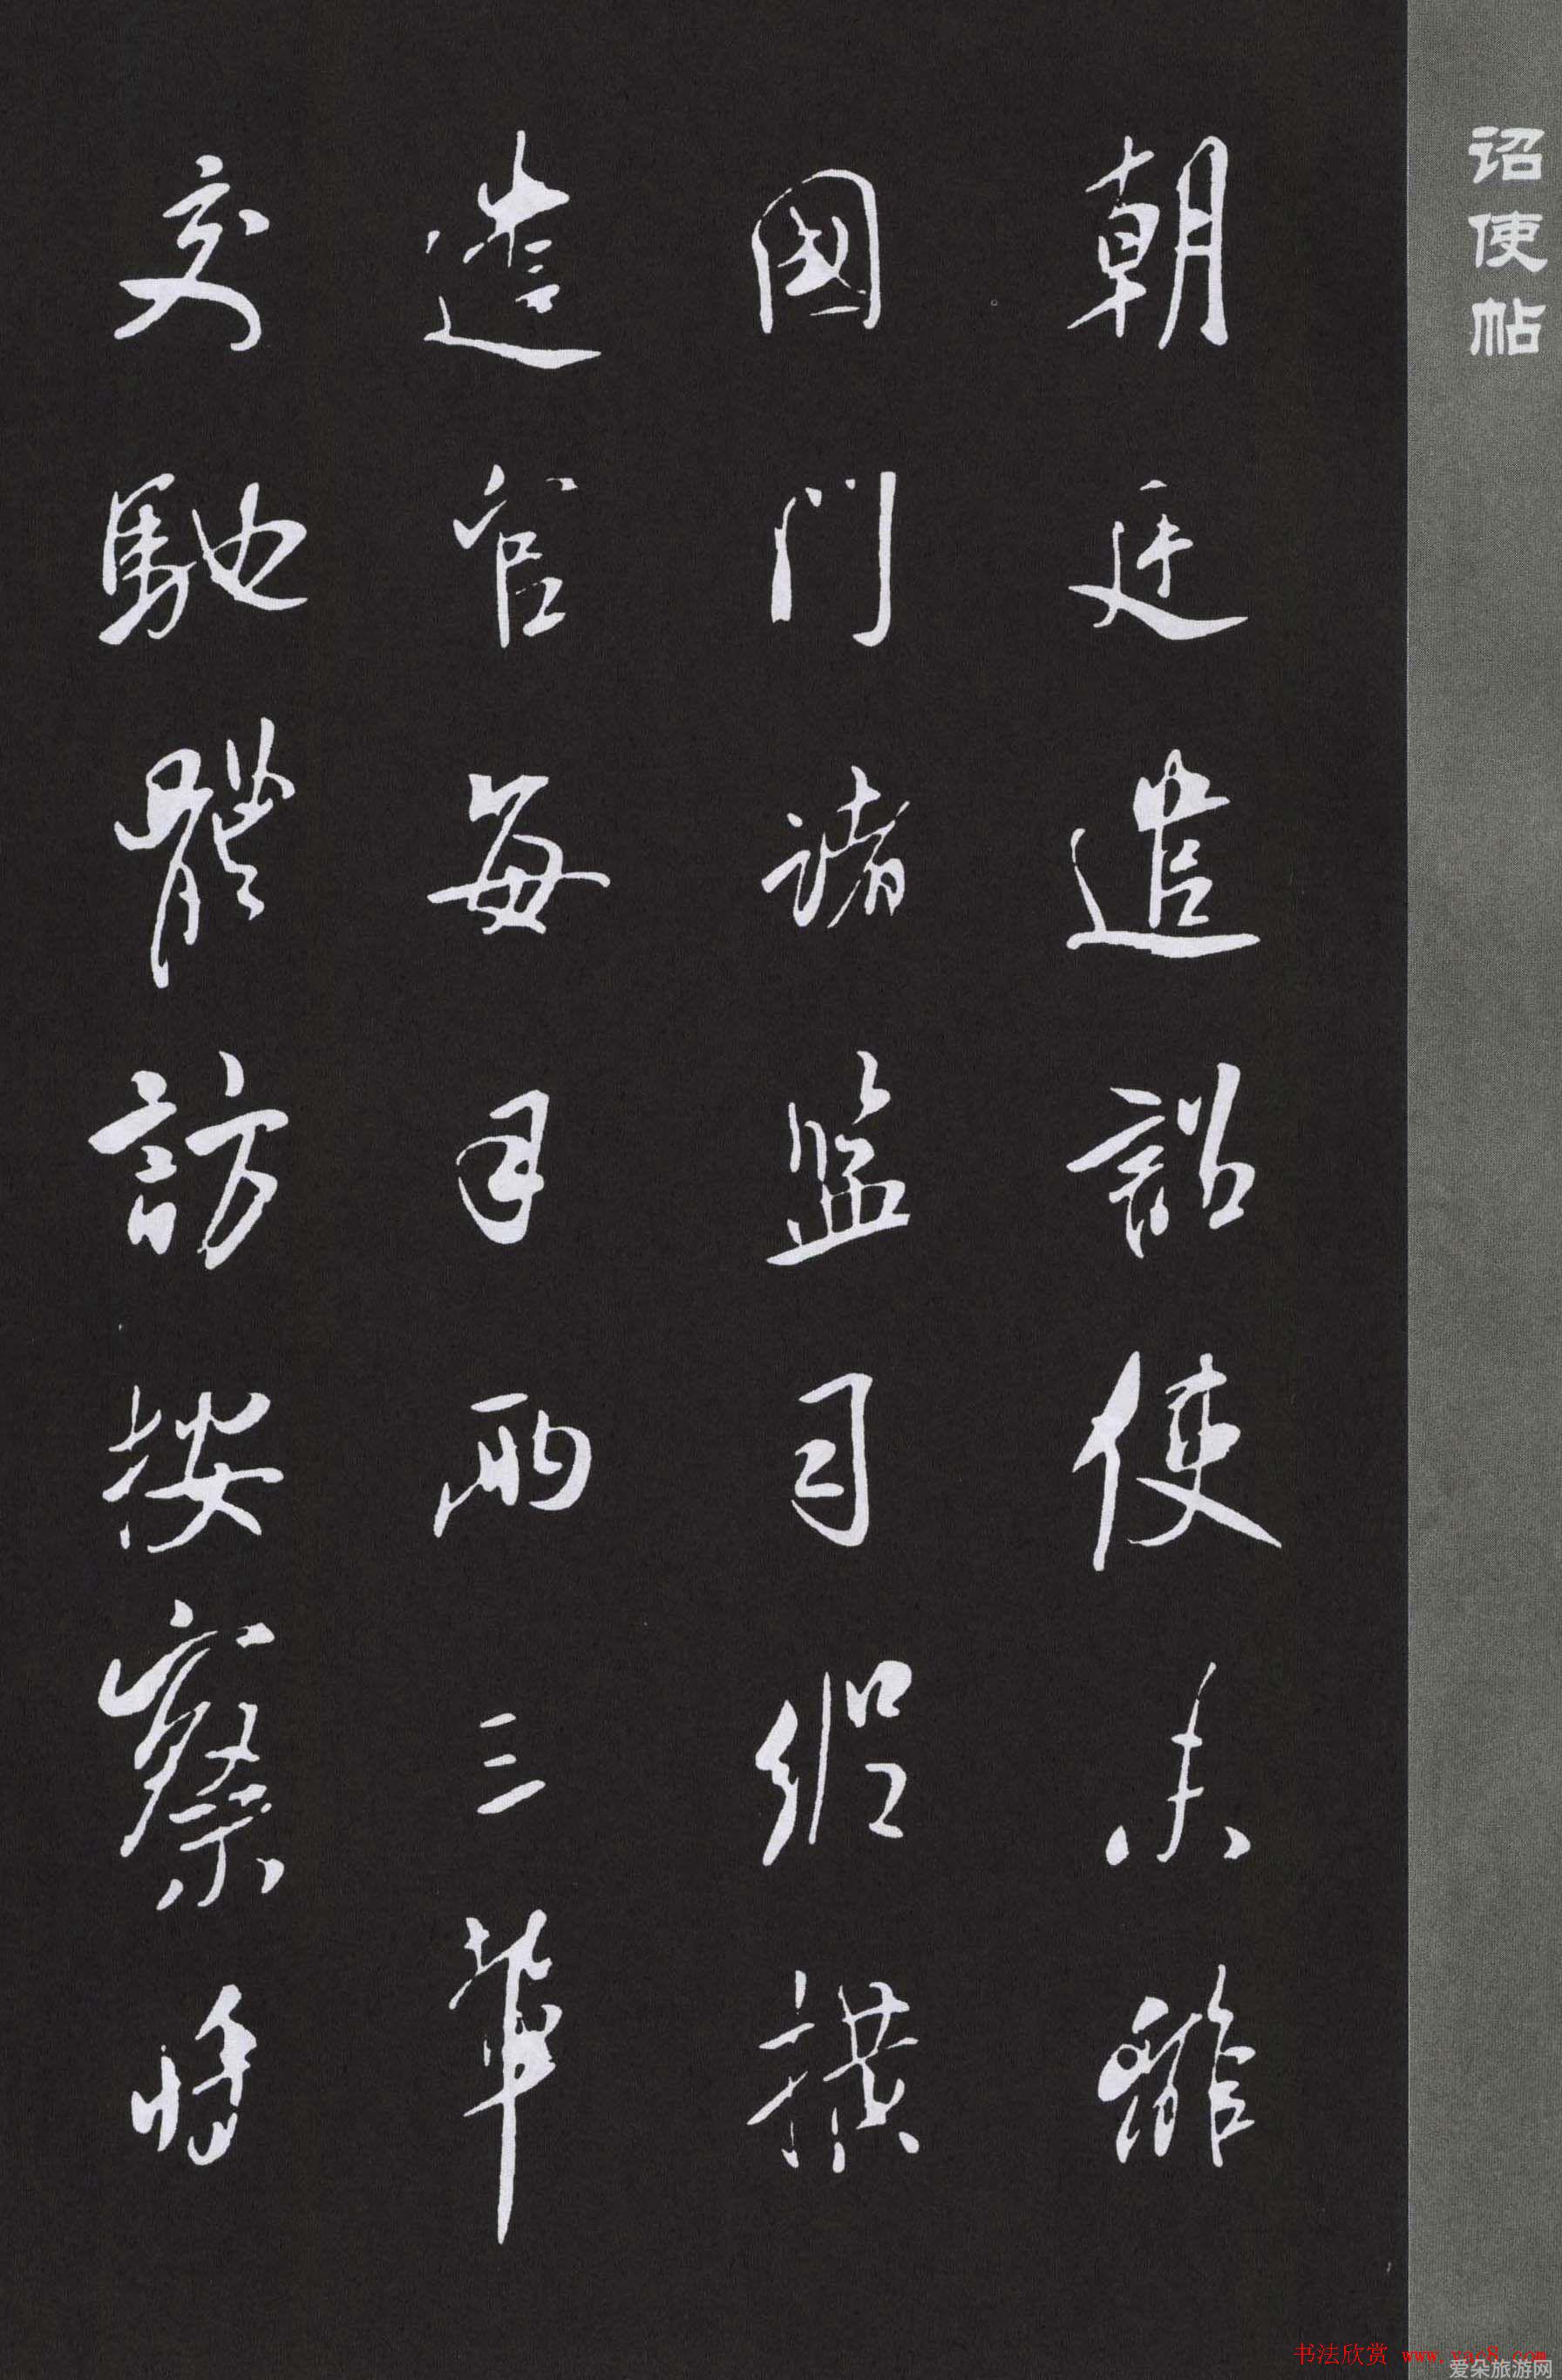 诏使帖
朝廷遣詔使未離
國門諸監司縱橫
遣官每月兩三輩
交馳體訪按察將
书法欣赏 www.yac8.com
爱朵旅游网